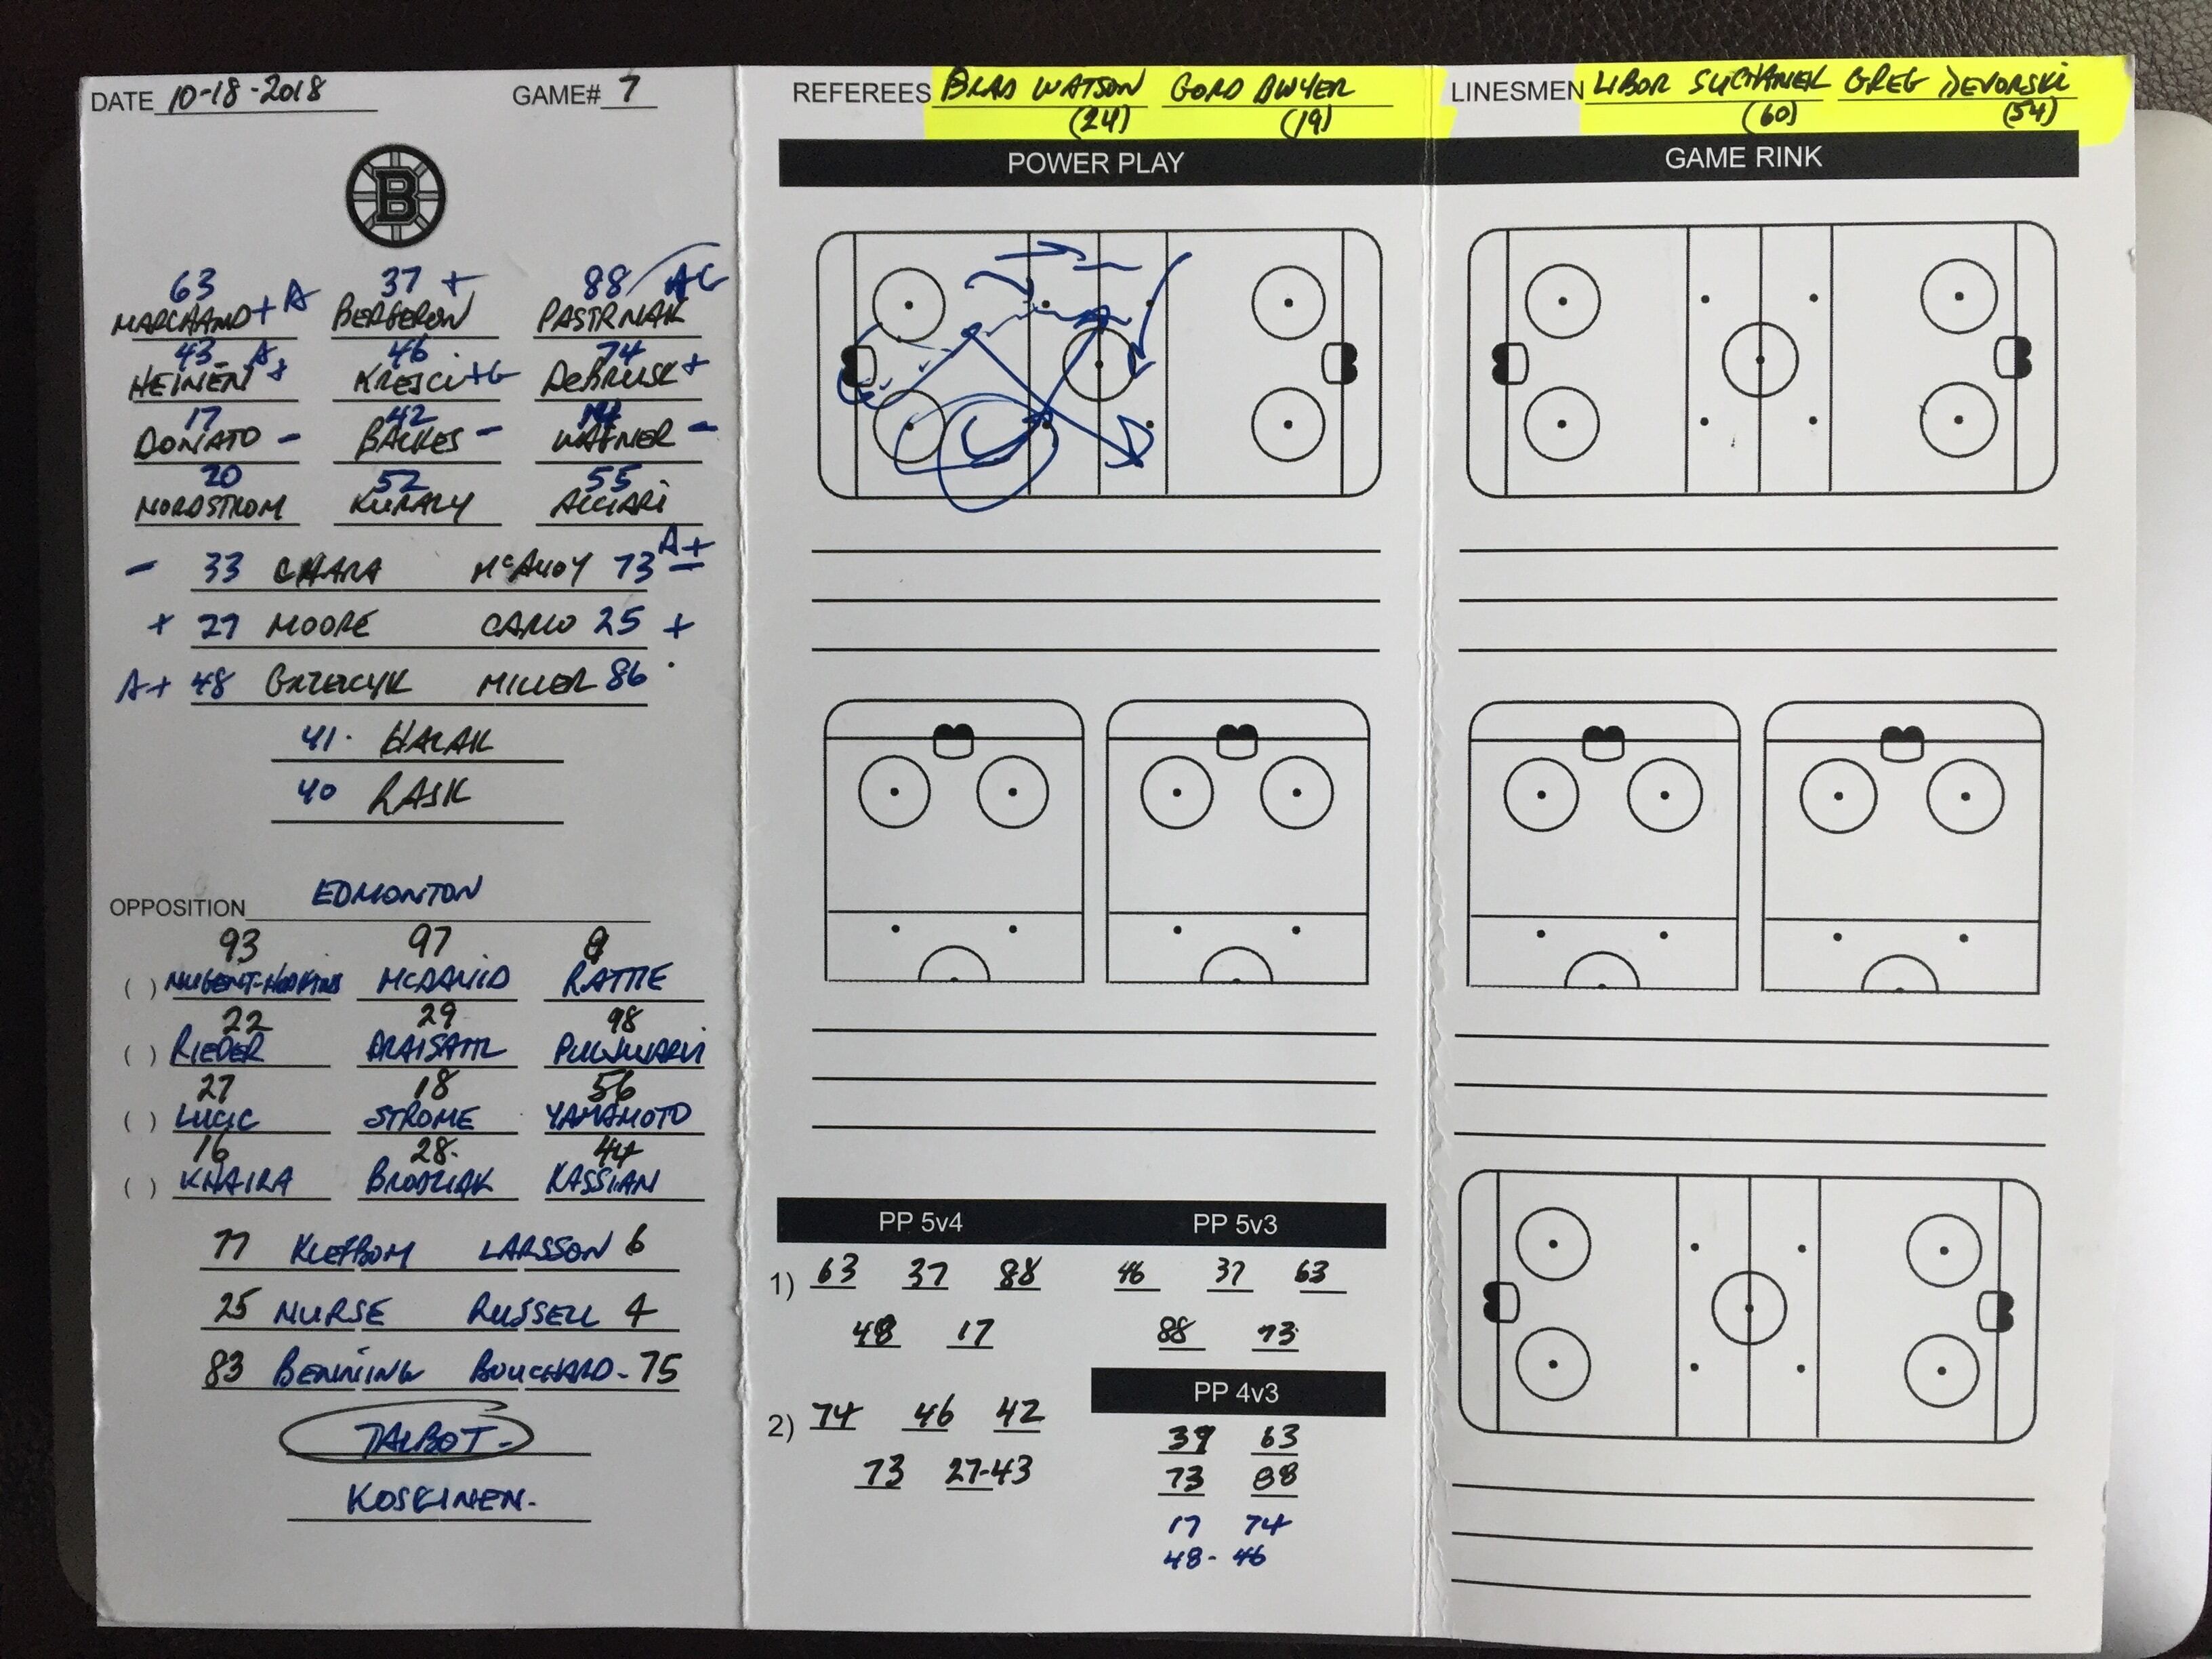 DATE 10-18-2018 GAME# 7
B
63 37 + 88 AG
MARCHAND + A BERGERON PASTRNAK
43 A 46 74
HEINEN + KREJCI + G DEBRUSK +
17 42
DONATO - BACKES - WAGNER -
20 52 55
NORDSTROM KURALY ACCIARI
A+
- 33 CHARA McAVOY 73 -
+ 27 MOORE CARLO 25 +
A+ 48 GRZELCYK MILLER 86
41. HALAK
40 RASK
OPPOSITION EDMONTON
93 97
( ) NUGENT-HOPKINS MCDAVID RATTIE
22 29 98
( ) RIEDER DRAISAITL PULJUJARVI
27 18 56
( ) LUCIC STROME YAMAMOTO
16 28. 44
( ) KHAIRA BRODZIAK KASSIAN
77 KLEFBOM LARSSON 6
25 NURSE RUSSELL 4
83 BENNING BOUCHARD - 75
TALBOT -
KOSKINEN.
REFEREES BRAD WATSON GORD DWYER
(24) (19)
POWER PLAY
PP 5v4
1) 63 37 88
48 17
2) 74 46 42
73 27-43
PP 5v3
46 37 63
88 73
PP 4v3
63
73 88
17 74
48 - 46
LINESMEN LIBOR SUCHANEK GREG DEVORSKI
(60) (54)
GAME RINK